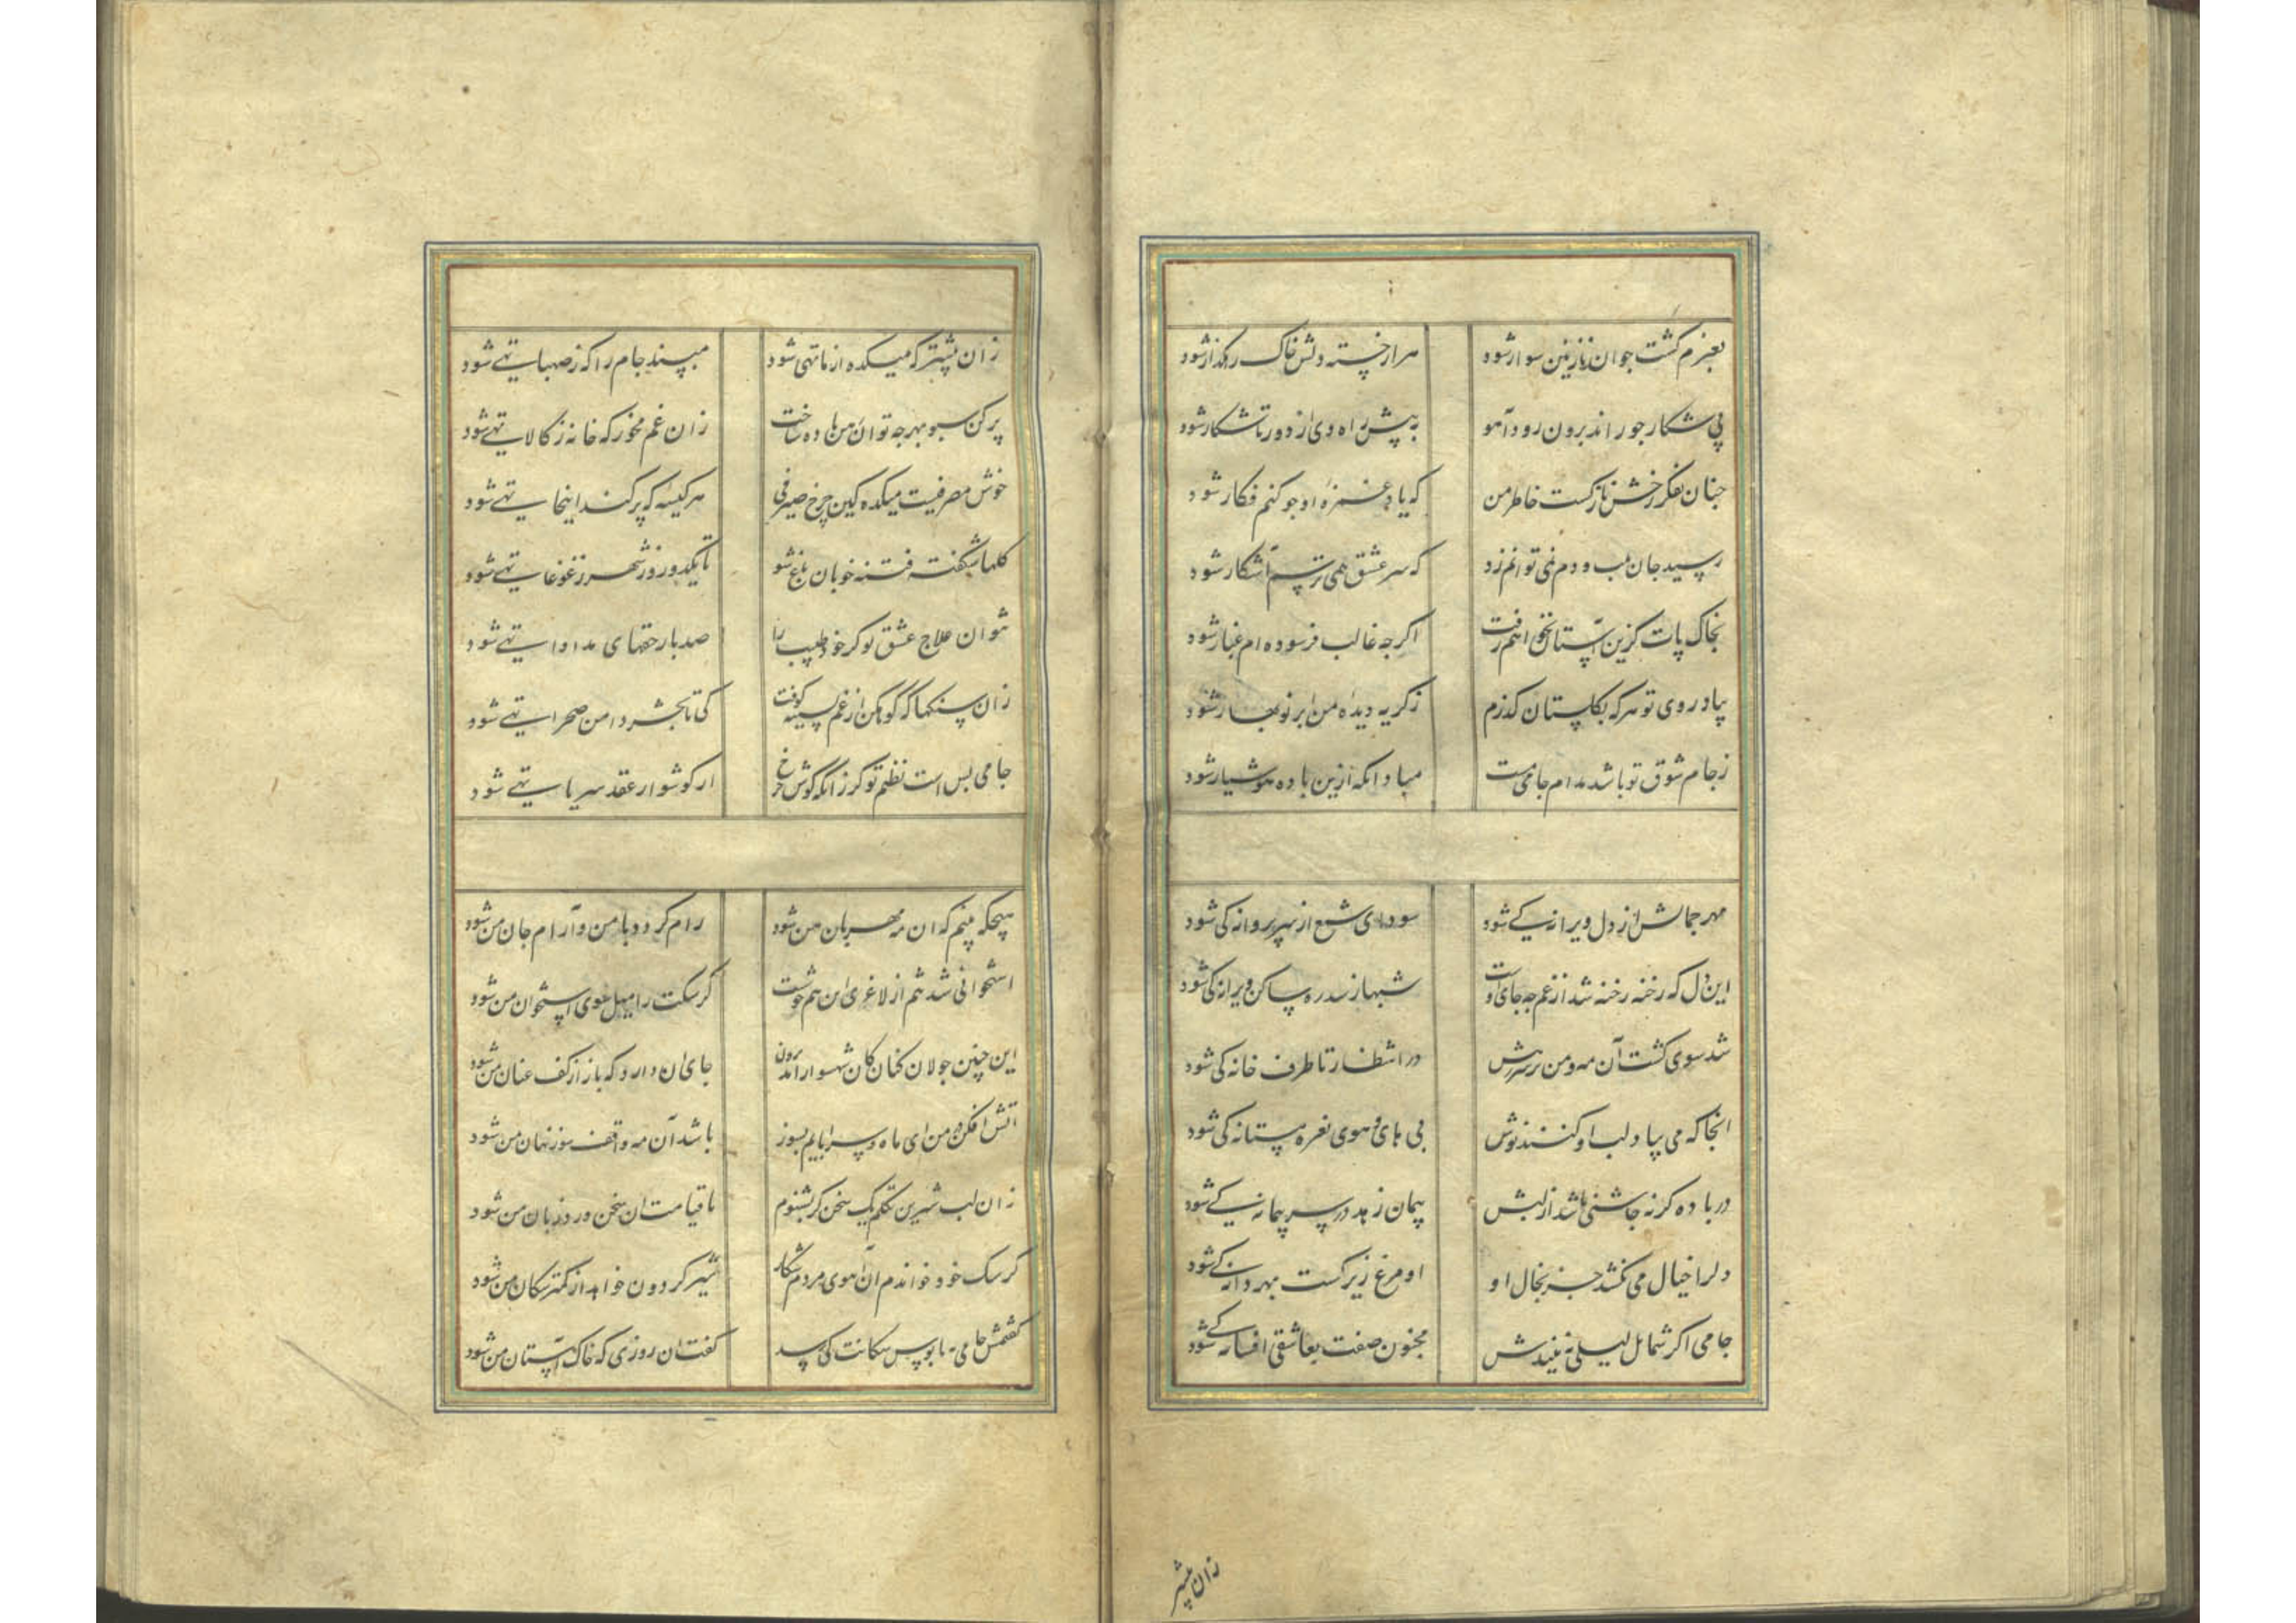 بعزم کشت جوان نازنین سوار شود هزار خسته دلش خاک رهکذار شود
پی شکار جو راند برون رود آهو به پیش راه وی از دور تا شکار شود
جنان بفکر رخش نازکست خاطر من که یاد غمزه او جو کنم فکار شود
رسید جان بلب و دم نمی توانم زد که سر عشق همی ترسم آشکار شود
بخاک پات کزین آستان نخواهم رفت اکرجه غالب فرسوده ام غبار شود
بیاد روی تو هرکه بکلستان کذرم زکریه دیده من ابر نوبهار شود
زجام شوق تو باشد مدام جامی مست مباد انکه ازین باده هوشیار شود
مهر جمالش از دل ویرانه کی شود سودای شمع از سر پروانه کی شود
این دل که رخنه رخنه شد از غم جه جای اوست شهباز سدره ساکن ویرانه کی شود
شد سوی کشت آن مه و من بر سر رهش در انتظار تا طرف خانه کی شود
انجا که می بیاد لب او کنند نوش بی های و هوی نعره مستانه کی شود
در باده کرنه جاشنی باشد از لبش پیمان زهد در سر پیمانه کی شود
دل را خیال می نکشد جز بخال او او مرغ زیرکست بهر دانه کی شود
جامی اکر شمایل لیلی نبیندش مجنون صفت بعاشقی افسانه کی شود
زان پیشتر
زان پیشتر که میکده از ما تهی شود مپسند جام را که ز صهبا تهی شود
پر کن سبو بهرجه توان رهن باده ساخت زان غم مخور که خانه ز کالا تهی شود
خوش مصرفیست میکده کین جرخ صیرفی هر کیسه که پر کند اینجا تهی شود
کلها شکفت فتنه خوبان باغ شو تا یکدو روز شهر ز غوغا تهی شود
نتوان علاج عشق تو کر خود طبیب را صد بار حقهای مداوا تهی شود
زان سنکها که کوهکن از غم بسینه کوفت کی تا بحشر دامن صحرا تهی شود
جامی بس است نظم تو کر زانکه کوش جرخ از کوشوار عقد ثریا تهی شود
هیجکه بینم که ان مه مهربان من شود رام کردد با من و آرام جان من شود
استخوانی شد تنم از لاغری این هم خوشست کر سکت را میل سوی استخوان من شود
این چنین جولان کنان کان شهسوار آمد برون جای ان دارد که باز از کف عنان من شود
اتش افکن در من ای ماه و سراپایم بسوز باشد آن مه واقف سوز نهان من شود
زان لب شیرین تکلم یک سخن کر بشنوم تا قیامت ان سخن ورد زبان من شود
کر سک خود خواندم آن آهوی مردم شکار شیر کردون خواهد از کمتر سکان من شود
کفتمش جامی بپابوس سکانت کی رسد کفت ان روزی که خاک آستان من شود